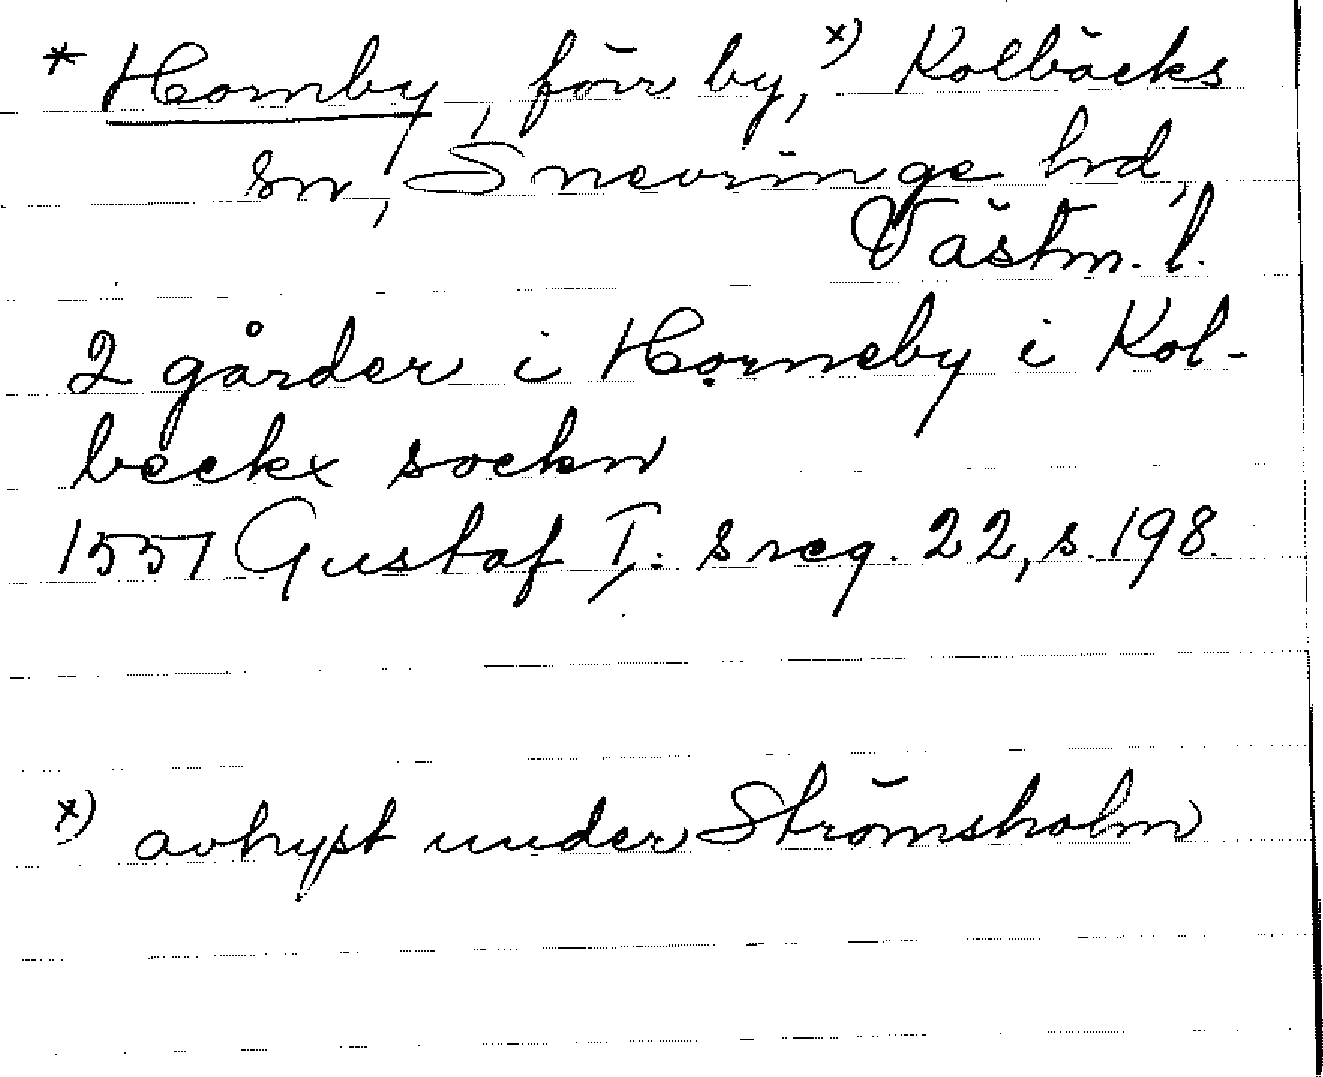 * Hornby, förr by, x) Kolbäcks
sn, Snevringe hrd,
Västm. l.
2 gårder i Horneby i Kol-
beckx sockn
1557 Gustaf I: s reg. 22, s. 198.
x) avhyst under Strömsholm